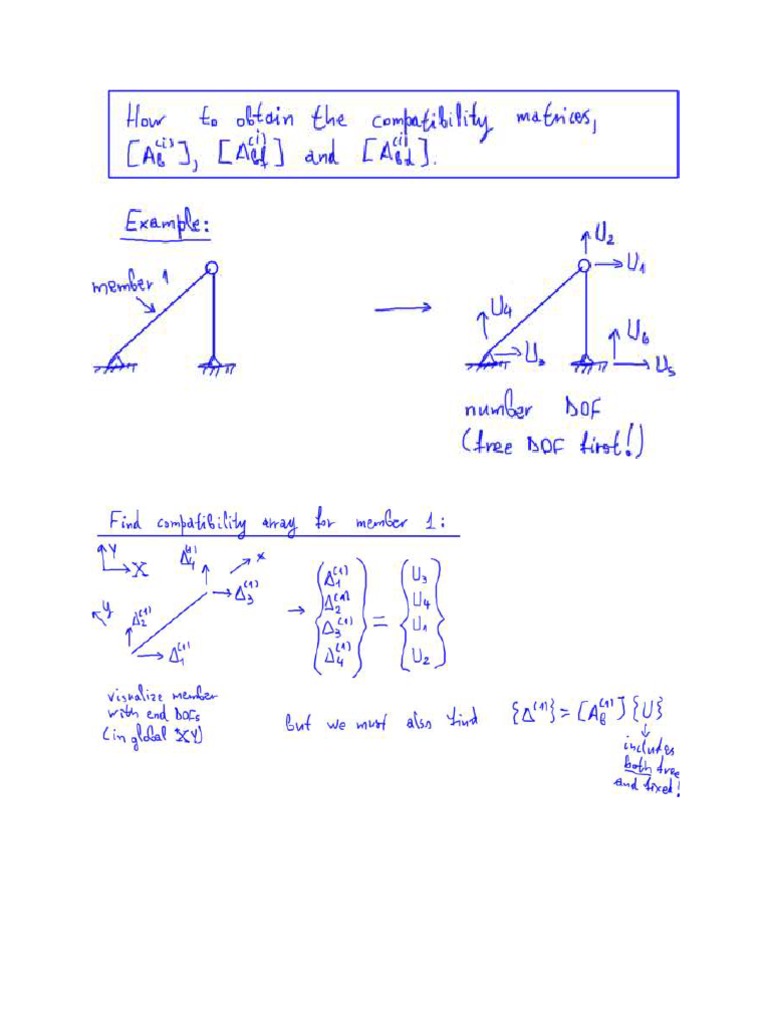 How to obtain the compatibility matrices,
[A_b^(i)], [A_bf^(i)] and [A_bd^(i)].
Example:
member 1
U2
U1
U4
U3
U6
U5
number DOF
(free DOF first!)
Find compatibility array for member 1:
Y
X
Δ4^(1)
x
Δ3^(1)
y
Δ2^(1)
Δ1^(1)
→ {Δ1^(1) Δ2^(1) Δ3^(1) Δ4^(1)} = {U3 U4 U1 U2}
visualize member
with end DOFs
(in global XY)
but we must also find {Δ^(1)} = [A_b^(1)] {U}
includes
both free
and fixed!